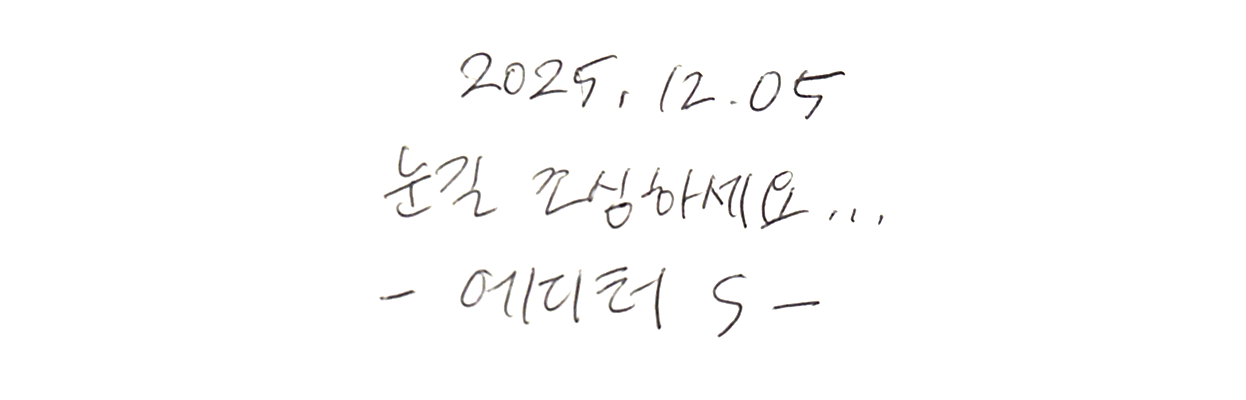 2025.12.05
눈길 조심하세요...
- 에디터 S -